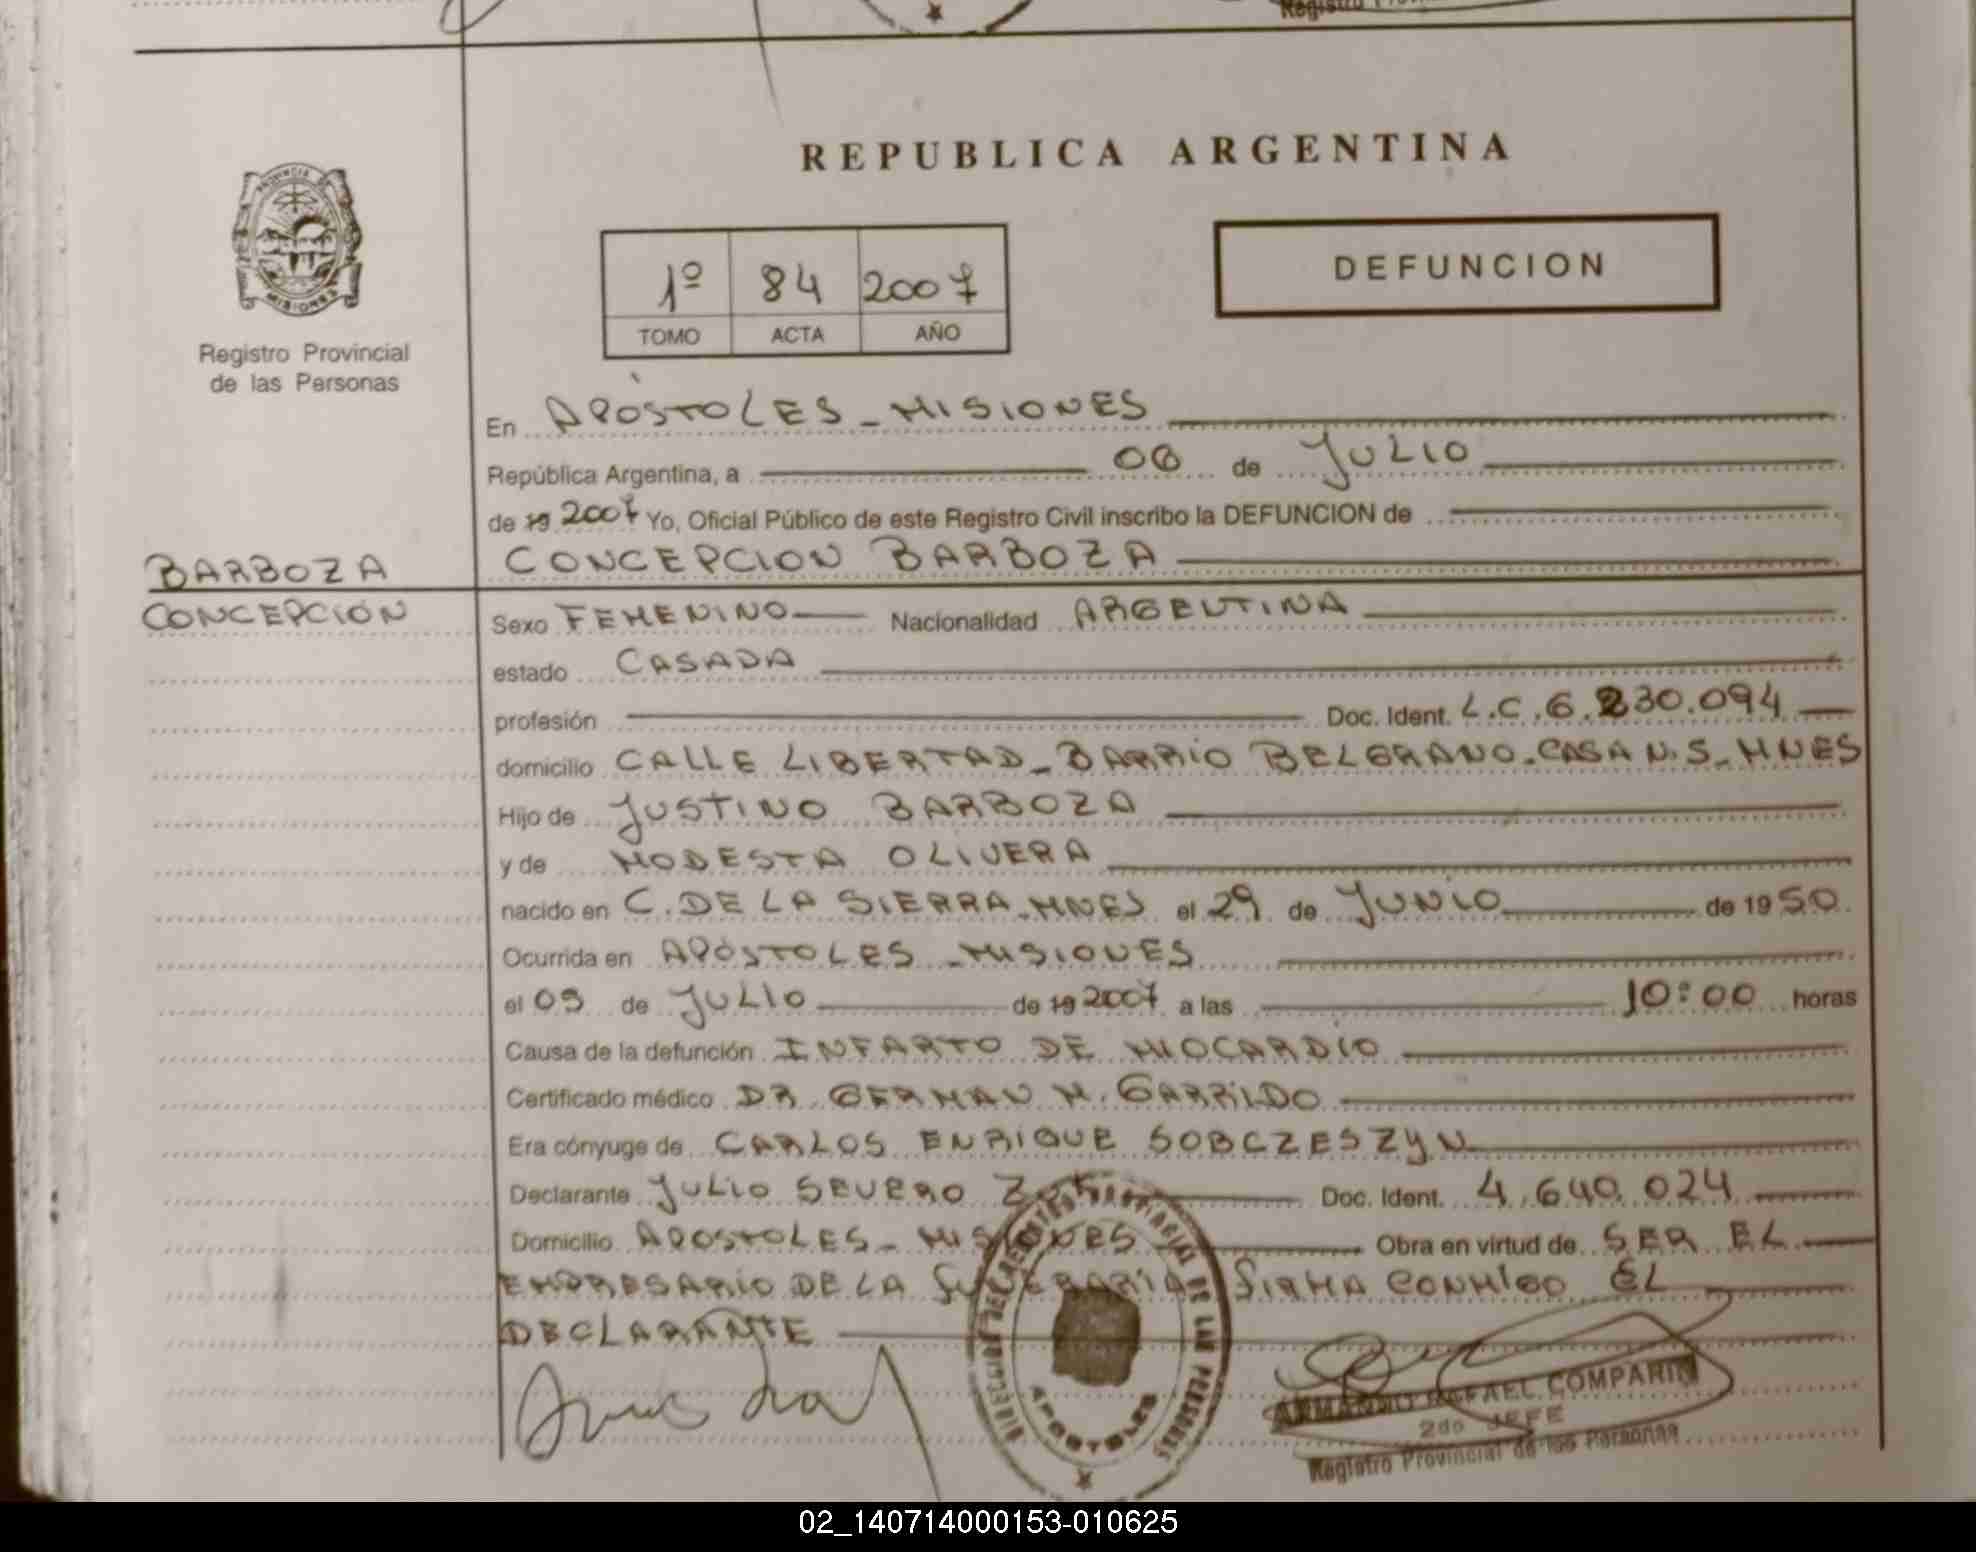 REPUBLICA ARGENTINA
PROVINCIA DE
MISIONES
Registro Provincial
de las Personas
1º 84 2007
TOMO ACTA AÑO
DEFUNCION
En APÓSTOLES - MISIONES
República Argentina, a 06 de JULIO
de 19 2007 Yo, Oficial Público de este Registro Civil inscribo la DEFUNCION de
BARBOZA CONCEPCION BARBOZA
CONCEPCIÓN
Sexo FEMENINO Nacionalidad ARGENTINA
estado CASADA
profesión Doc. Ident. L.C. 6.230.094
domicilio CALLE LIBERTAD - BARRIO BELGRANO - CASA N.5 - MNES
Hijo de JUSTINO BARBOZA
y de MODESTA OLIVERA
nacido en C. DE LA SIERRA - MNES el 29 de JUNIO de 1950
Ocurrida en APÓSTOLES - MISIONES
el 05 de JULIO de 19 2007 a las 10:00 horas
Causa de la defunción INFARTO DE MIOCARDIO
Certificado médico DR. GERMAN M. GARRIDO
Era cónyuge de CARLOS ENRIQUE SOBCZESZYN
Declarante JULIO SEVERO Doc. Ident. 4.640.024
Domicilio APOSTOLES - MISIONES Obra en virtud de SER EL
EMPRESARIO DE LA FUNERARIA FIRMA CONMIGO EL
DECLARANTE
PROVINCIAL DE LAS PERSONAS
APOSTOLES
ARMANDO RAFAEL COMPARIN
2do JEFE
Registro Provincial de las Personas
02_140714000153-010625